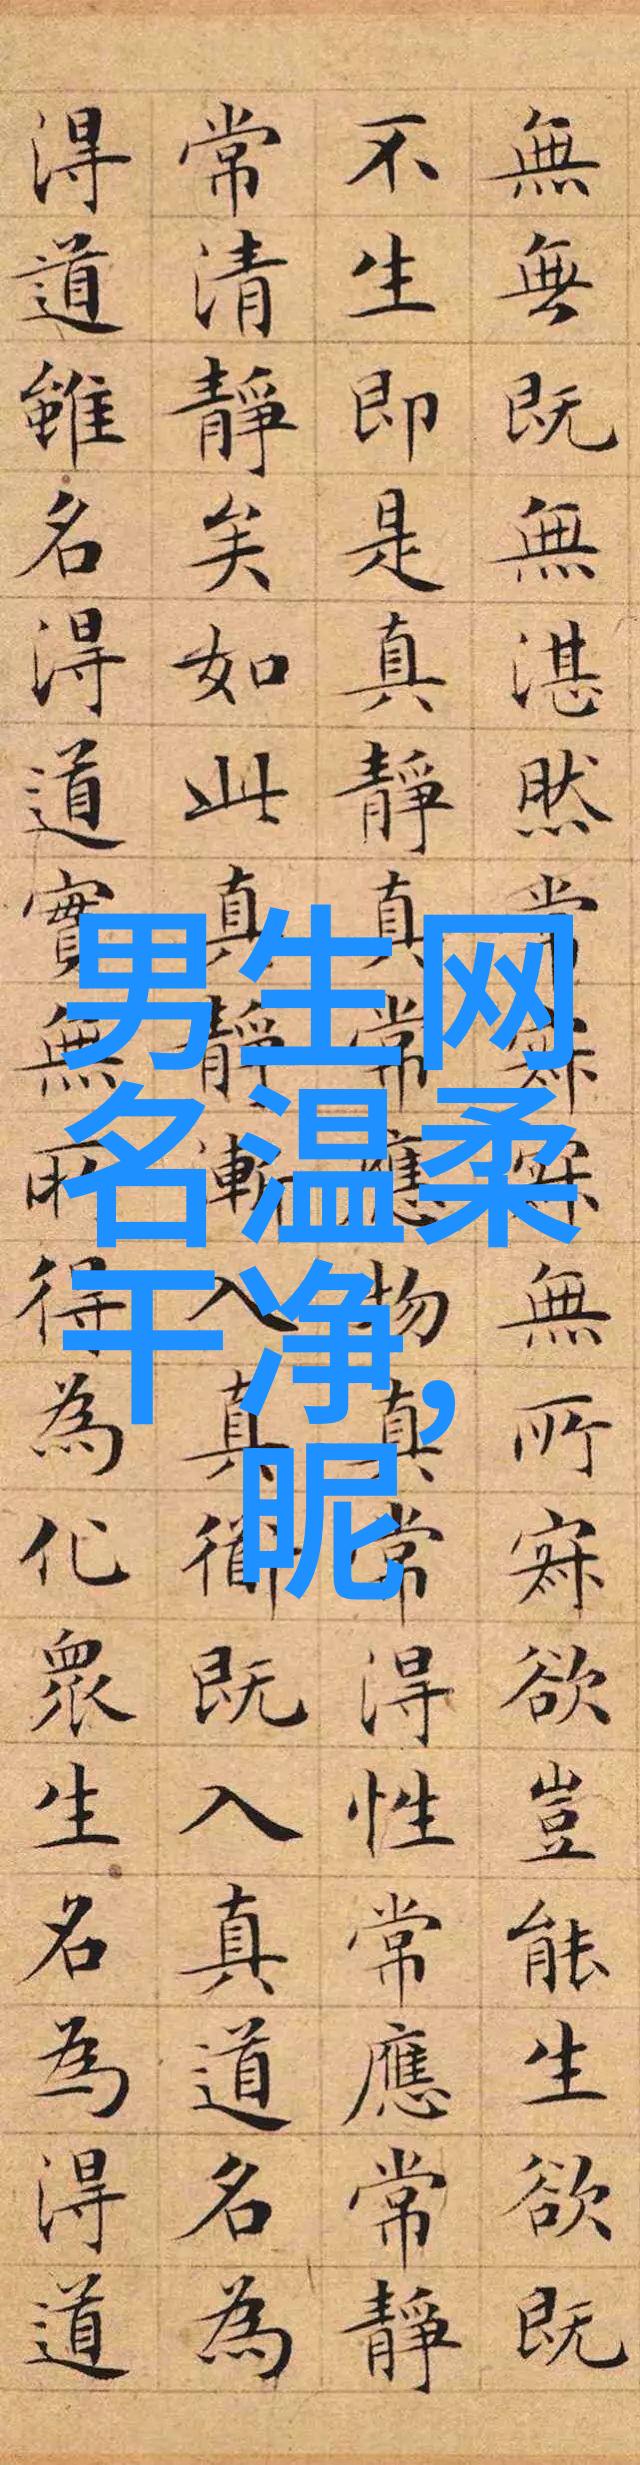 無無既無湛然常寂寂無所寂欲豈能生欲既
不生即是真靜真常應物真常得性常應常靜
常清靜矣如此真靜漸入真衜既入真道名為
得道雖名得道實無所得為化眾生名為得道
男生网
名温柔
干净,
昵